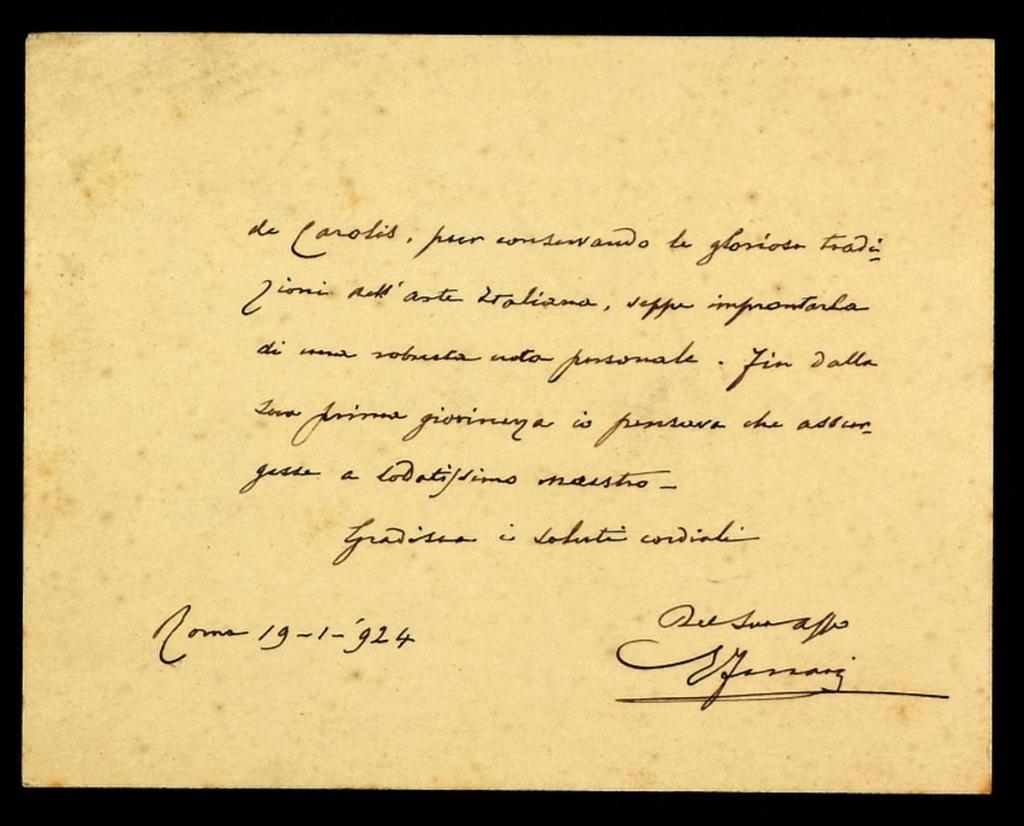 de Carolis, pur conservando le gloriose tradi-
zioni dell'arte Italiana, seppe improntarla
di una robusta nota personale. Fin dalla
sua prima giovinezza io pensava che assur-
gesse a lodatissimo maestro-
Gradisca i saluti cordiali
Roma 19-1-'924
Del Suo affo
Ferrari